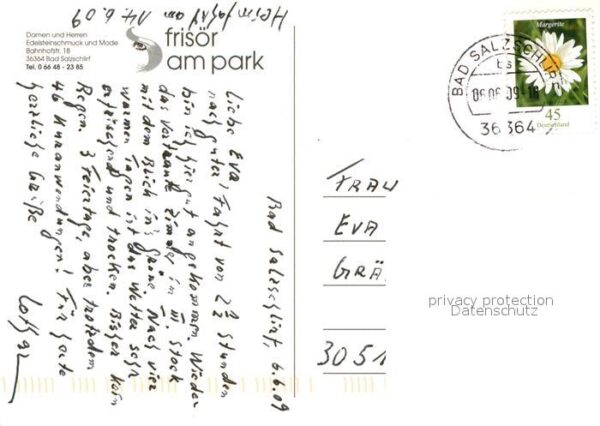 Heimfahrt am
14.6.09
Damen und Herren
Edelsteinschmuck und Mode
Bahnhofstr. 18
36364 Bad Salzschlirf
Tel. 0 66 48 - 23 85
frisör
am park
Bad Salzschlirf, 6.6.09
Liebe Eva, Fahrt von 2 1/2 Stunden
nach guter
bin ich hier gut angekommen. Wieder
das vertraute Zimmer im III. Stock
mit dem Blick in's Grüne. Nach vier
warmen Tagen ist das Wetter sehr
erfrischend und trocken. Bisher kein
Regen. 3 Feiertage, aber trotzdem
46 Kuranwendungen! Für heute
herzliche Grüße
Margerite
45
Deutschland
BAD SALZSCHLIRF
bs
06.06.09-18
36364
FRAU
EVA
GRÄ
3051
privacy protection
Datenschutz